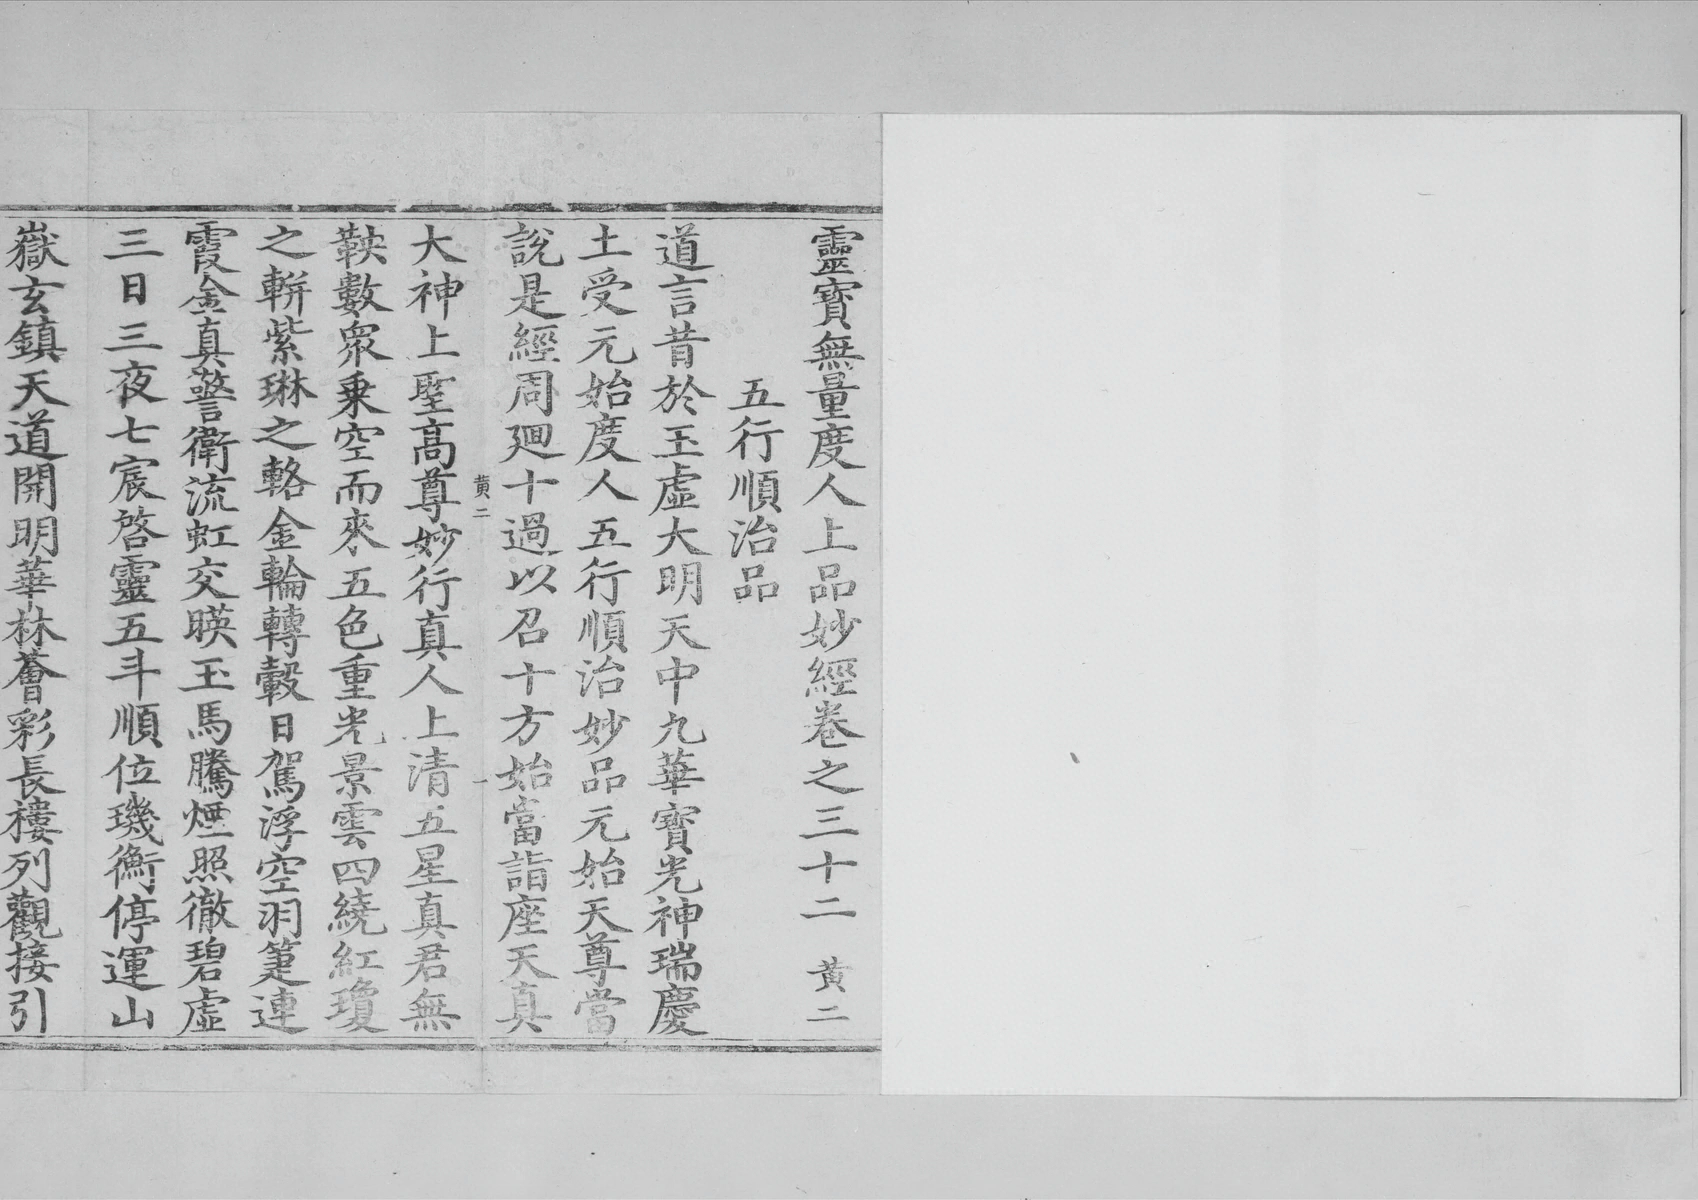 靈寶無量度人上品妙經卷之三十二　黃二
五行順治品
道言昔於玉虛大明天中九華寶光神瑞慶
土受元始度人五行順治妙品元始天尊當
說是經周廻十過以召十方始當詣座天真
黃二　一
大神上聖高尊妙行真人上清五星真君無
鞅數衆乗空而來五色重光景雲四繞紅瓊
之輧紫琳之輅金輪轉轂日駕浮空羽箑連
霞金真警衛流虹交暎玉馬騰煙照徹碧虛
三日三夜七宸啓靈五斗順位璣衡停運山
嶽玄鎮天道開明華林薈彩長樓列觀接引